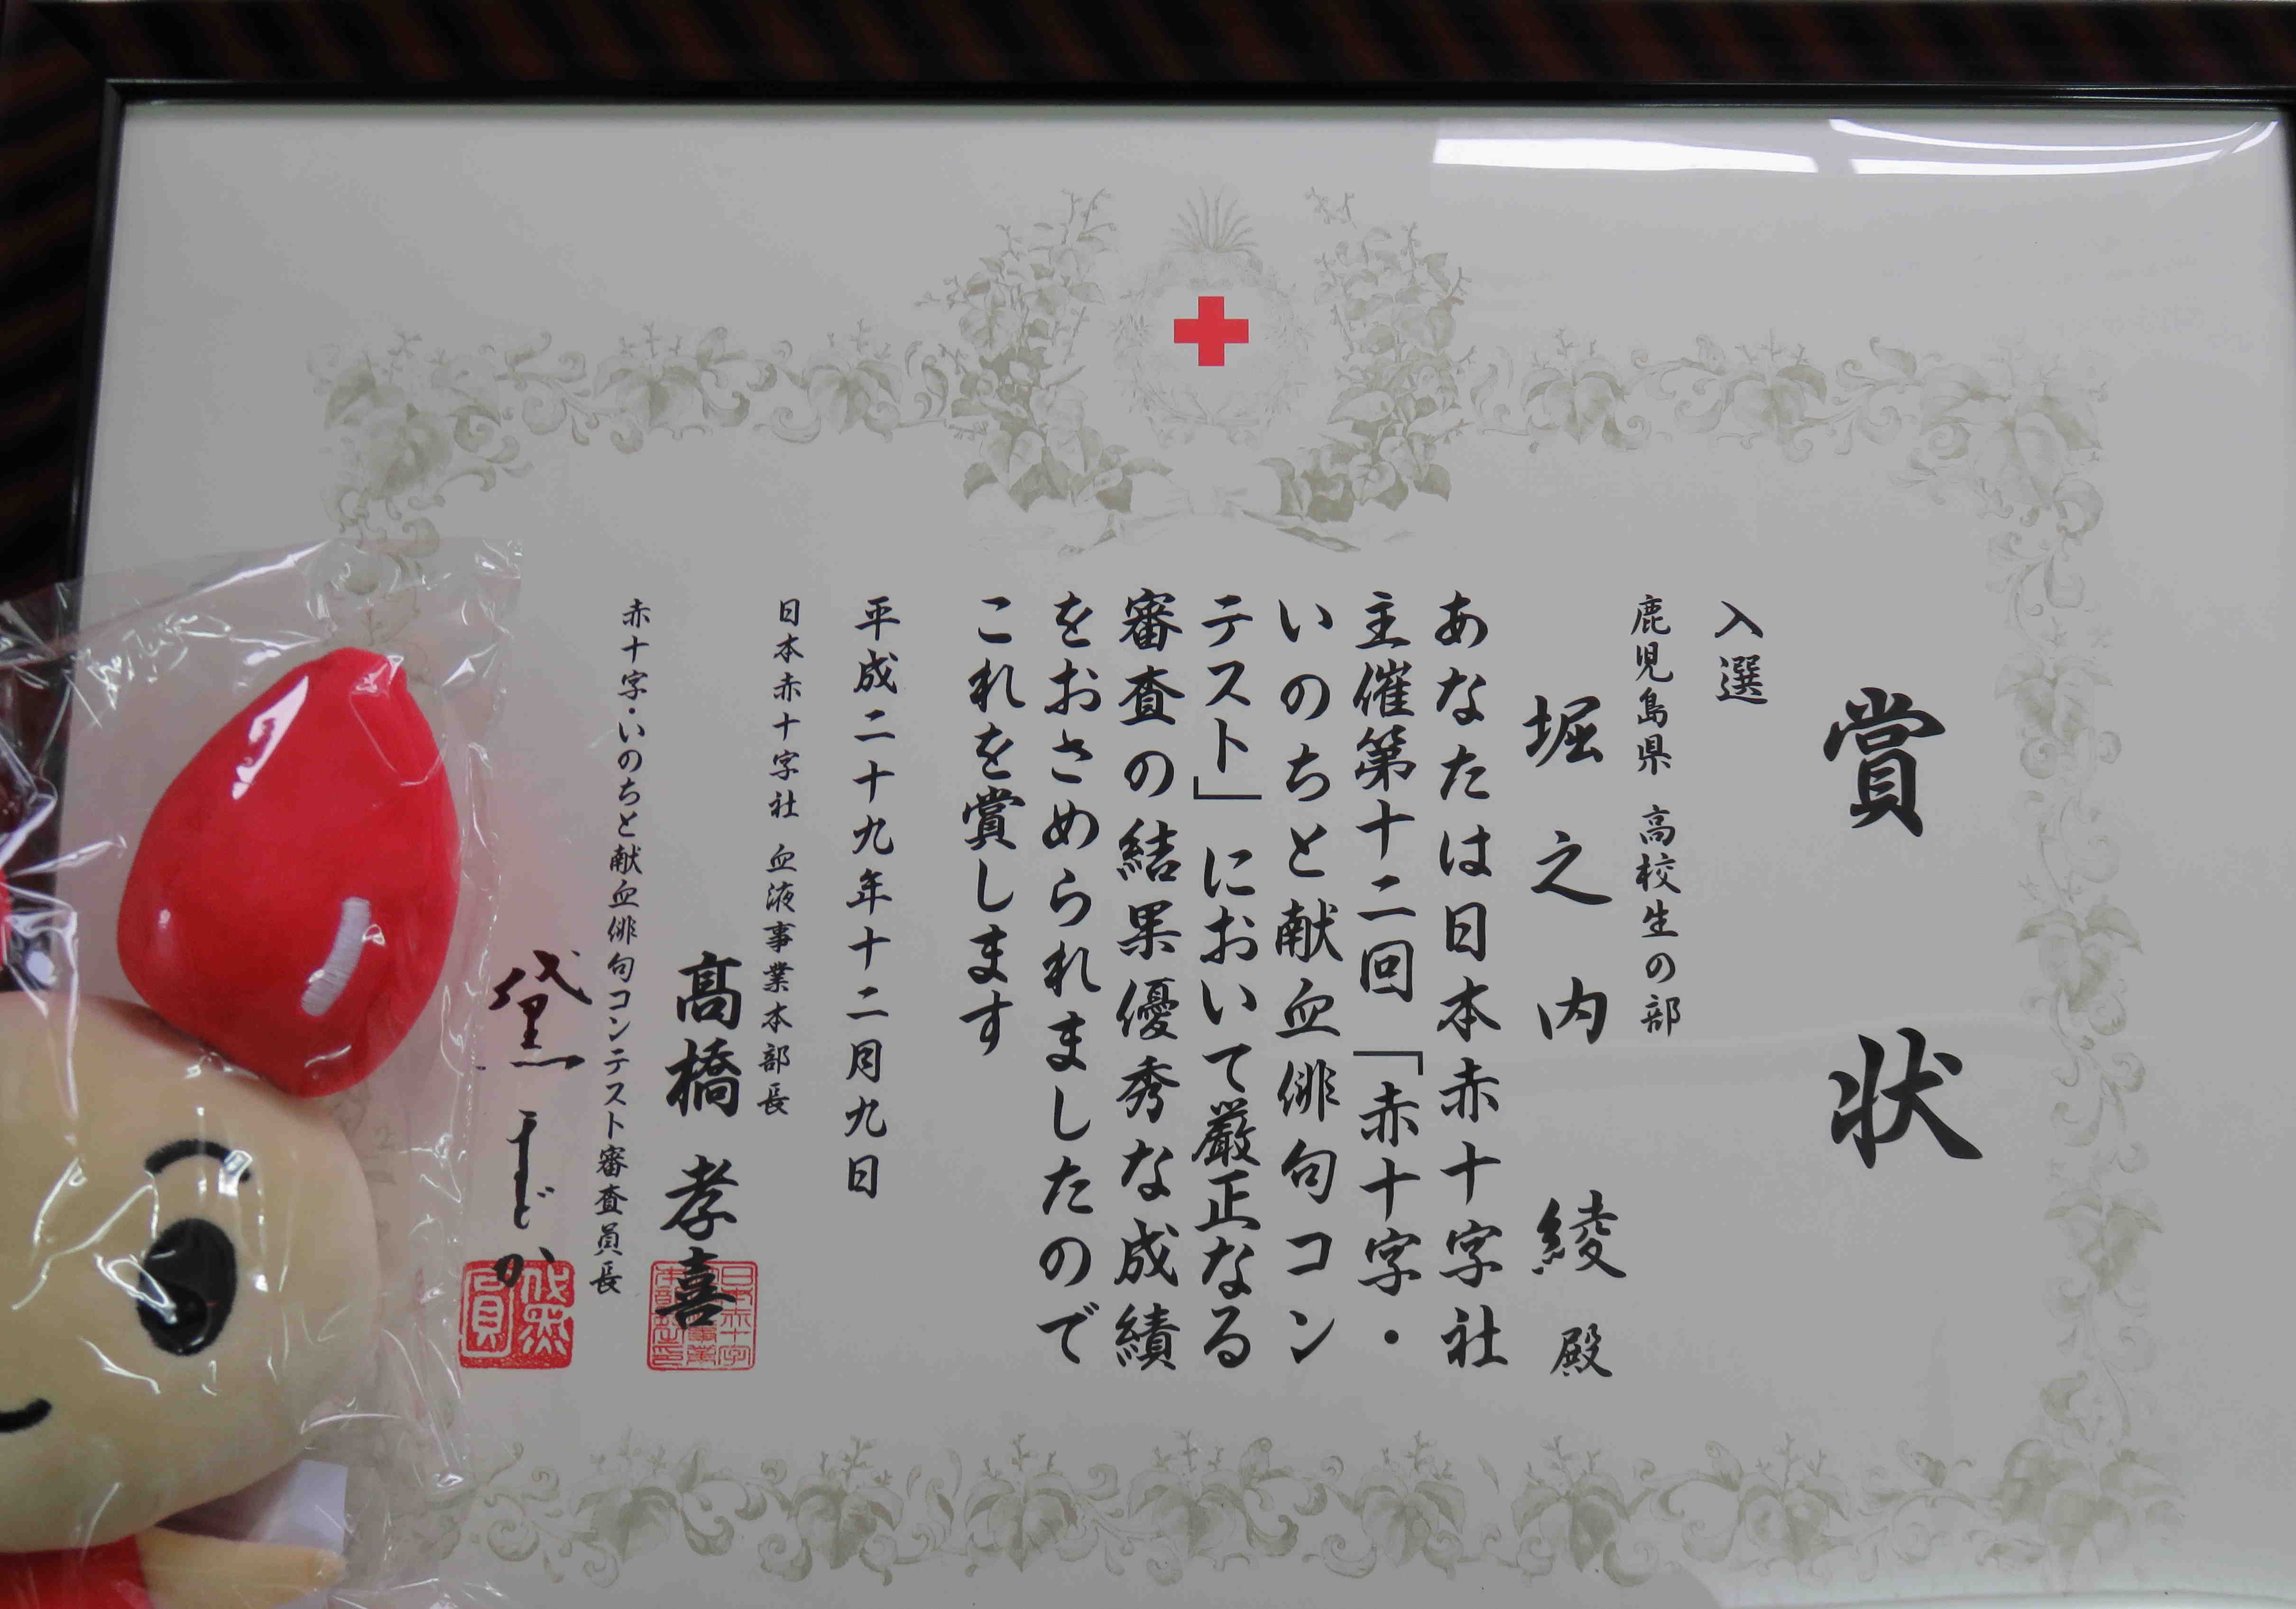 賞状
入選
鹿児島県 高校生の部
堀之内 綾 殿
あなたは日本赤十字社
主催第十二回「赤十字・
いのちと献血俳句コン
テスト」において厳正なる
審査の結果優秀な成績
をおさめられましたので
これを賞します
平成二十九年十二月九日
日本赤十字社 血液事業本部長
髙橋 孝喜
赤十字・いのちと献血俳句コンテスト審査員長
黛 まどか